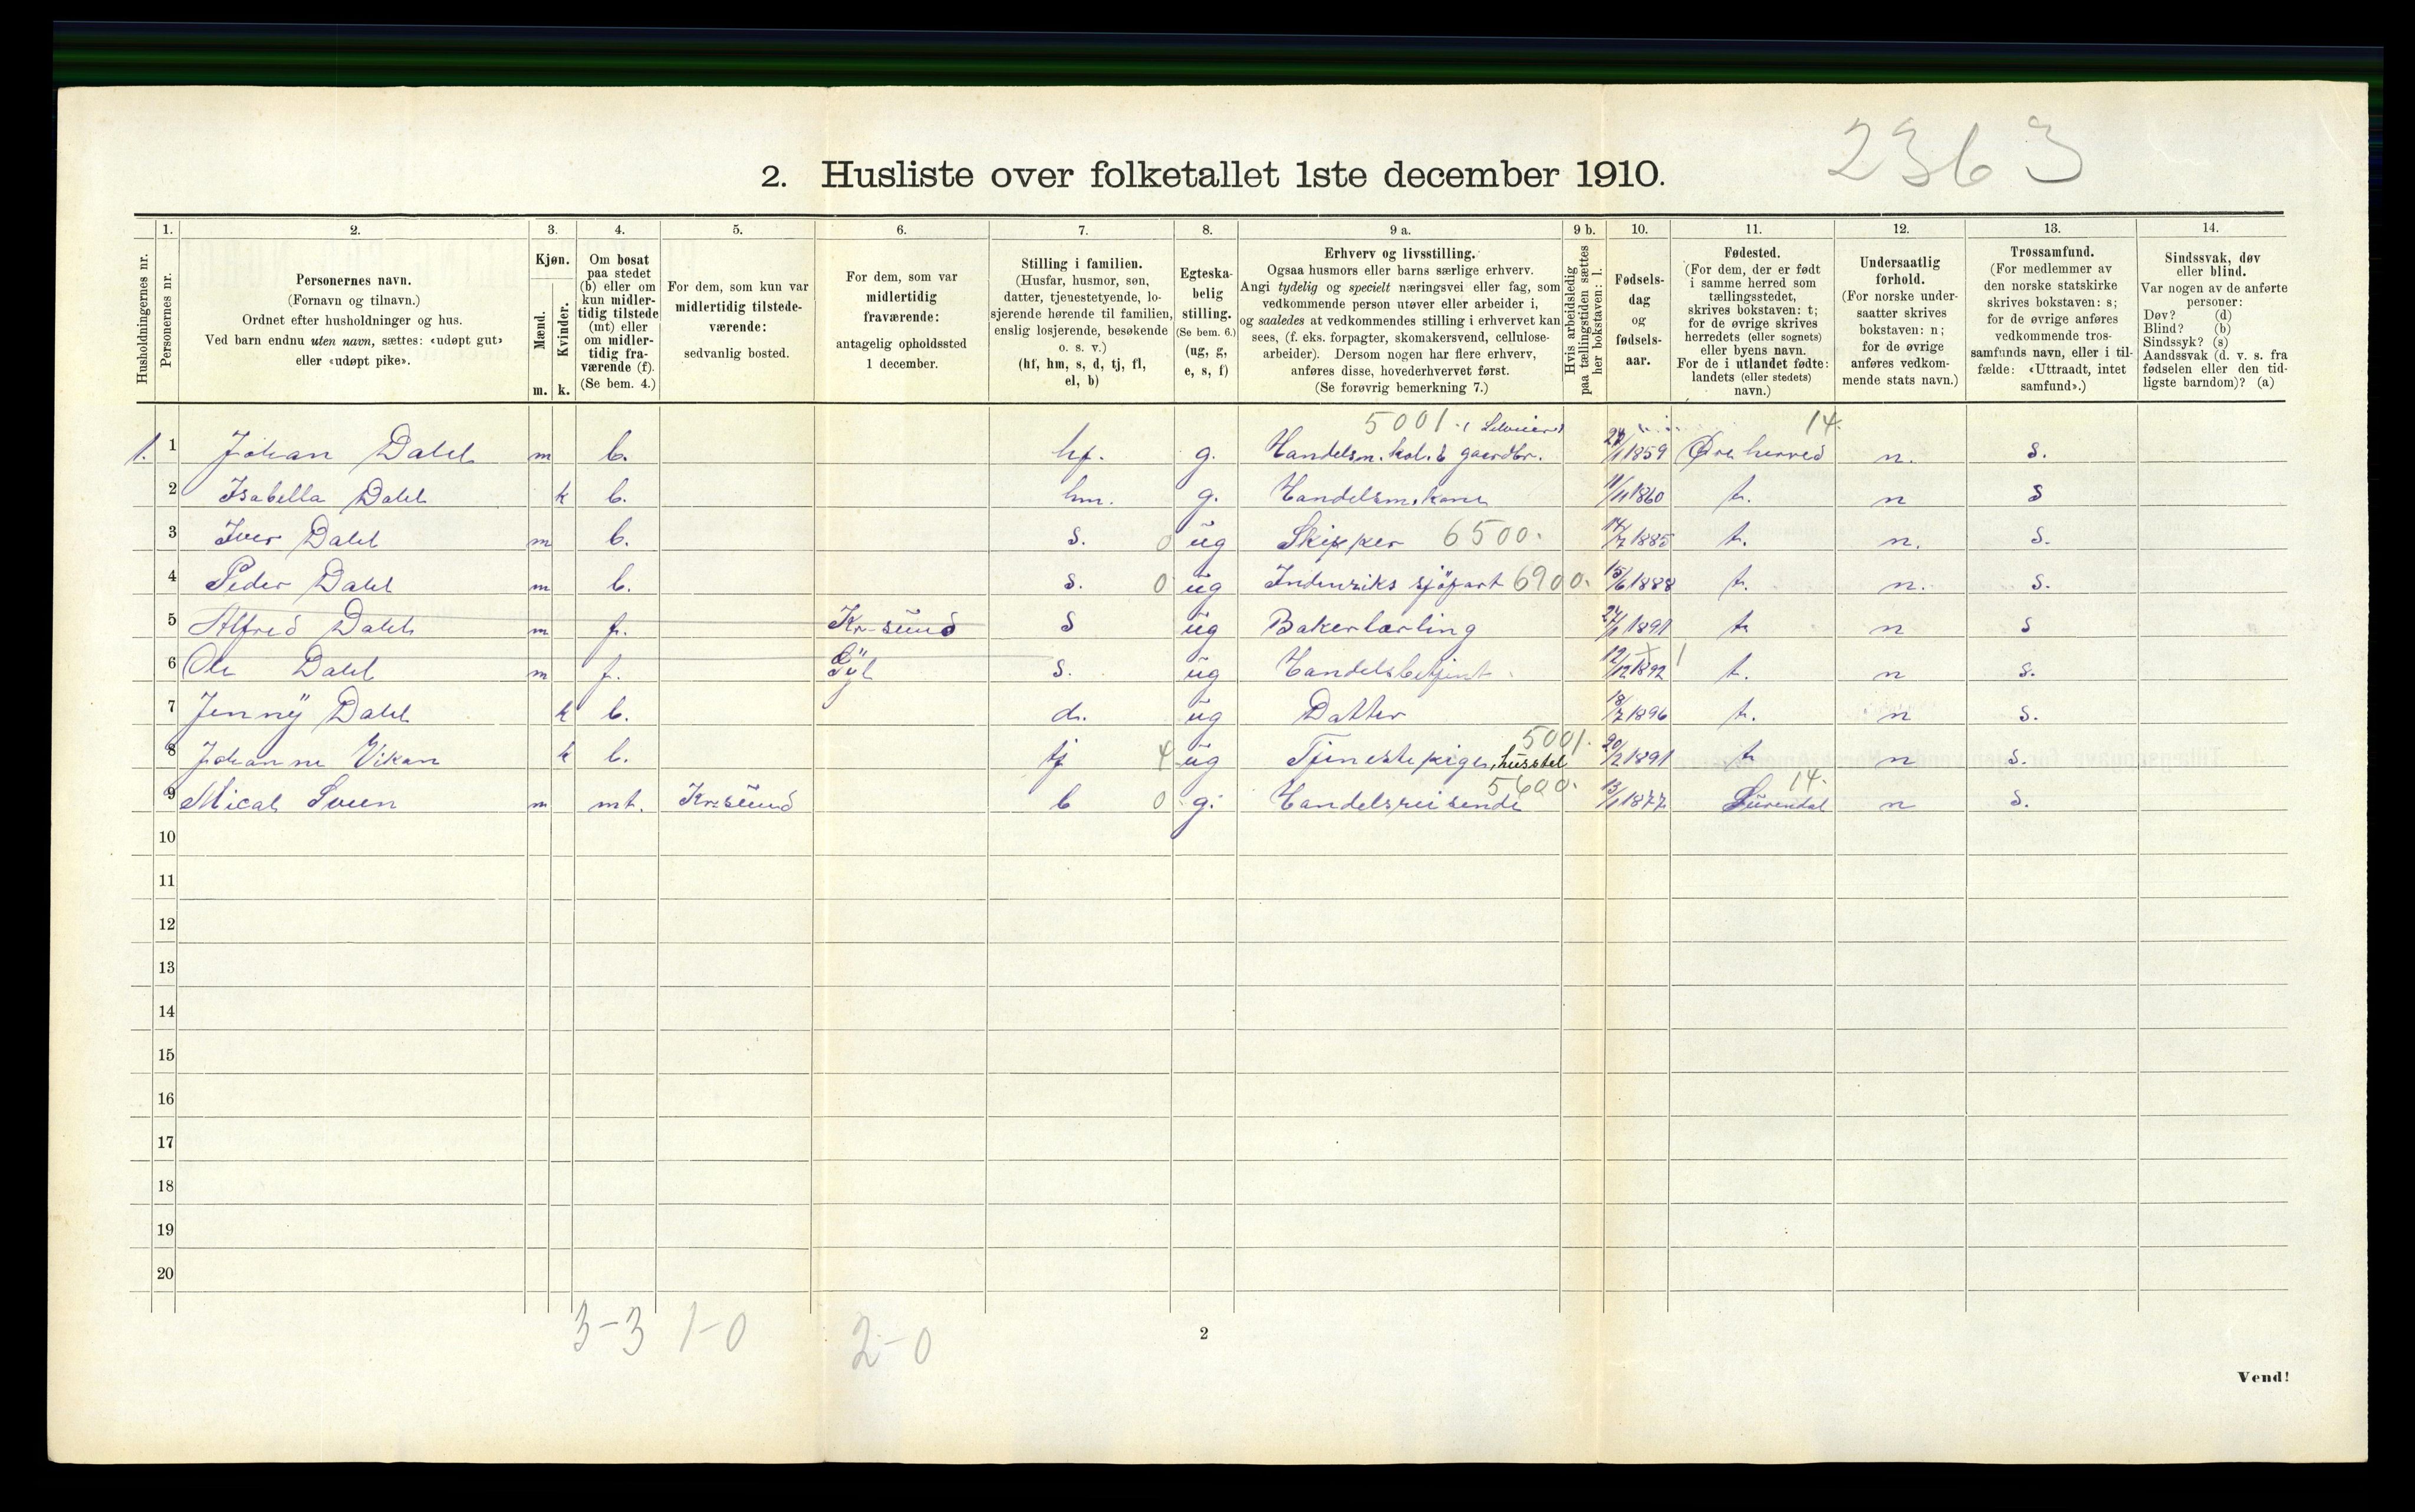 2363
2. Husliste over folketallet 1ste december 1910.
Husholdningernes nr.
1. Personernes nr.
2. Personernes navn.
(Fornavn og tilnavn.)
Ordnet efter husholdninger og hus.
Ved barn endnu uten navn, sættes: «udøpt gut»
eller «udøpt pike».
3. Kjøn.
Mænd. m.
Kvinder. k.
4. Om bosat
paa stedet
(b) eller om
kun midler-
tidig tilstede
(mt) eller
om midler-
tidig fra-
værende (f).
(Se bem. 4.)
5. For dem, som kun var
midlertidig tilstede-
værende:
sedvanlig bosted.
6. For dem, som var
midlertidig
fraværende:
antagelig opholdssted
1 december.
7. Stilling i familien.
(Husfar, husmor, søn,
datter, tjenestetyende, lo-
sjerende hørende til familien,
enslig losjerende, besøkende
o. s. v.)
(hf, hm, s, d, tj, fl,
el, b)
8. Egteska-
belig
stilling.
(Se bem. 6.)
(ug, g,
e, s, f)
9 a. Erhverv og livsstilling.
Ogsaa husmors eller barns særlige erhverv.
Angi tydelig og specielt næringsvei eller fag, som
vedkommende person utøver eller arbeider i,
og saaledes at vedkommendes stilling i erhvervet kan
sees, (f. eks. forpagter, skomakersvend, cellulose-
arbeider). Dersom nogen har flere erhverv,
anføres disse, hovederhvervet først.
(Se forøvrig bemerkning 7.)
9 b. Hvis arbeidsledig
paa tællingstiden sættes
her bokstaven: l.
10. Fødsels-
dag
og
fødsels-
aar.
11. Fødested.
(For dem, der er født
i samme herred som
tællingsstedet,
skrives bokstaven: t;
for de øvrige skrives
herredets (eller sognets)
eller byens navn.
For de i utlandet fødte:
landets (eller stedets)
navn.)
12. Undersaatlig
forhold.
(For norske under-
saatter skrives
bokstaven: n;
for de øvrige
anføres vedkom-
mende stats navn.)
13. Trossamfund.
(For medlemmer av
den norske statskirke
skrives bokstaven: s;
for de øvrige anføres
vedkommende tros-
samfunds navn, eller i til-
fælde: «Uttraadt, intet
samfund».)
14. Sindssvak, døv
eller blind.
Var nogen av de anførte
personer:
Døv? (d)
Blind? (b)
Sindssyk? (s)
Aandssvak (d. v. s. fra
fødselen eller den tid-
ligste barndom)? (a)
5001. 14.
1. 1 Johan Dahl m b. hf. g. Handelsm. kol. & gaardbr. 1859 Øre herred n. s.
2 Isabella Dahl k b. hm. g. Handelsm. kone 11/11 1860 t. n s
3 Iver Dahl m b. s. 0 ug Skipper 6500. 14/7 1885 t. n. s.
4 Peder Dahl m b. s. 0 ug Indenriks sjöfart 6900. 15/6 1888 t. n. s.
5 Alfred Dahl m f. Kr-sund s ug Bakerlærling 1891 t n s
6 Ole Dahl m f. s. ug Handelsbetjent 12/12 1892 t. n s.
7 Jenny Dahl k b. d. ug Datter 18/7 1896 t. n s.
8 Johanne Vikan k b. tj 4 ug Tjenestepige, husstel 5001. 20/2 1891 t n s.
9 Mical Sven m mt. Kr.sund b 0 g. Handelsreisende 5600. 13/1 1877 Surendal 14. n s.
10
11
12
13
14
15
16
17
18
19
20
3-3 1-0 2-0
2
Vend!